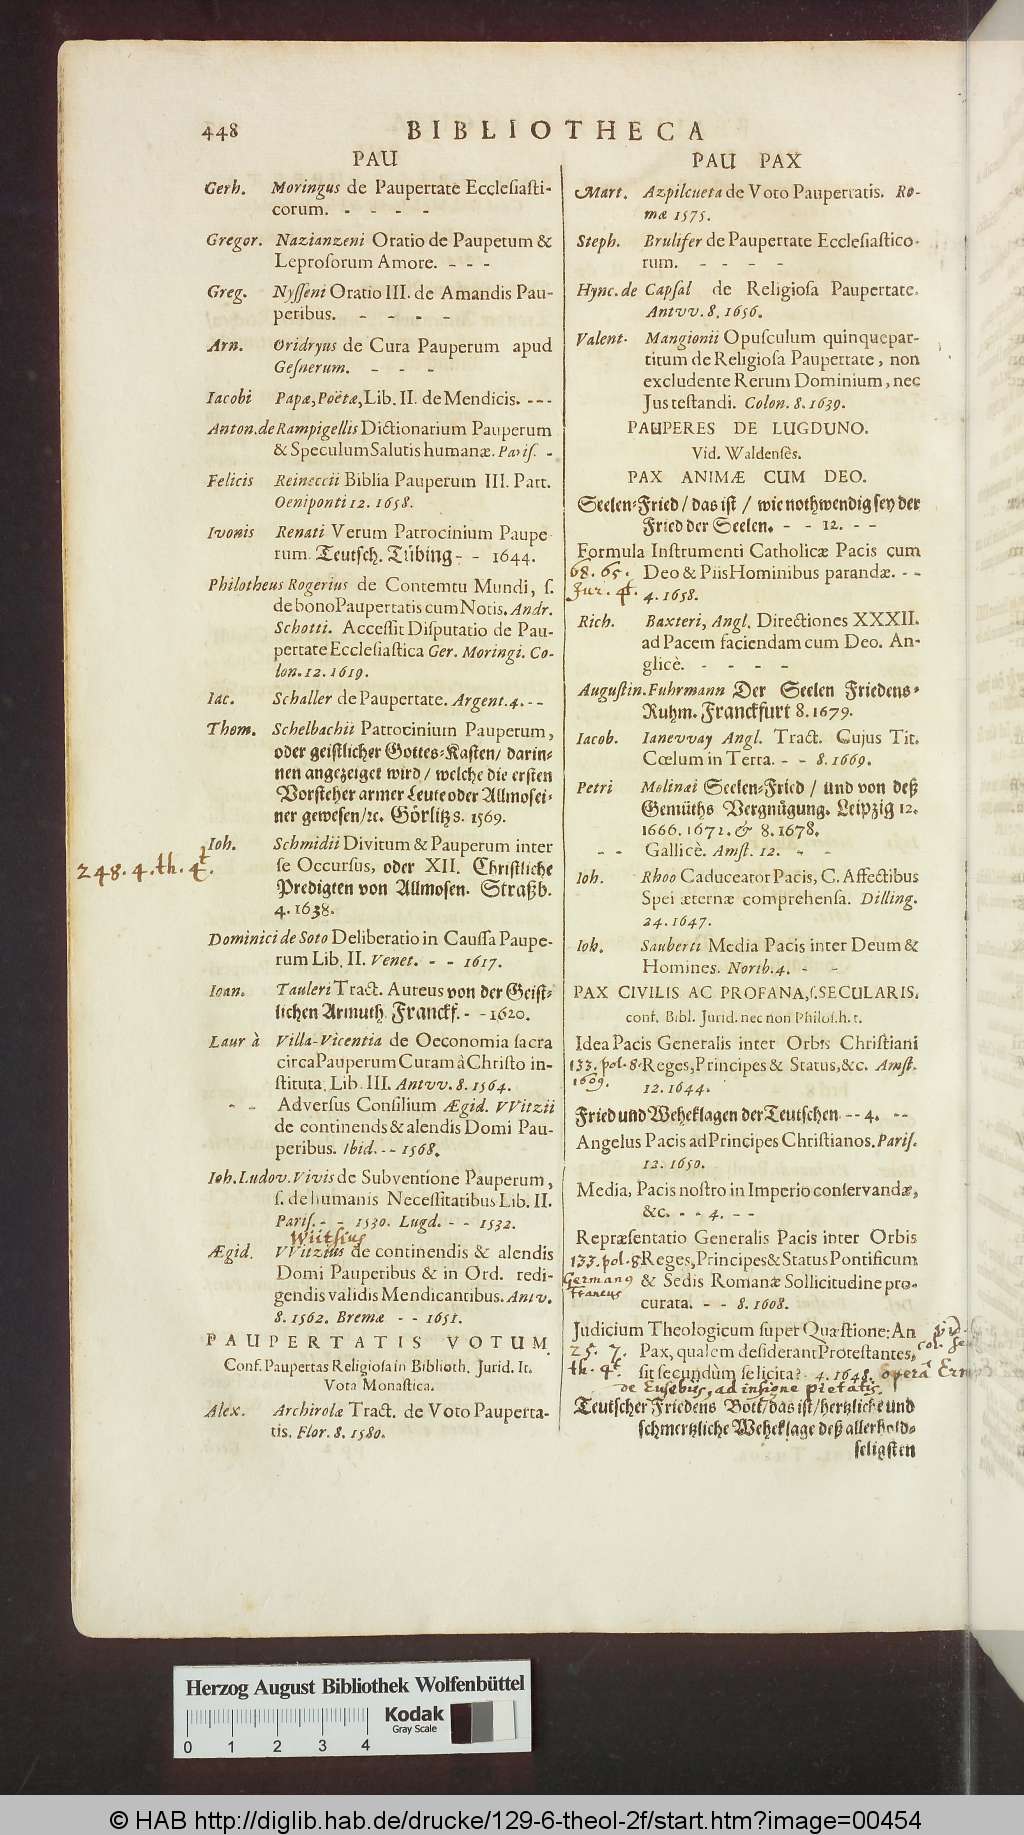 448 BIBLIOTHECA
PAU
Gerh. Moringus de Paupertate Ecclesiasti-
corum. - - - -
Gregor. Nazianzeni Oratio de Pauperum &
Leprosorum Amore. - - -
Greg. Nysseni Oratio III. de Amandis Pau-
peribus. - - - -
Arn. Oridryus de Cura Pauperum apud
Gesnerum. - - -
Iacobi Papæ, Poëtæ, Lib. II. de Mendicis. - - -
Anton. de Rampigellis Dictionarium Pauperum
& Speculum Salutis humanæ. Paris. -
Felicis Reineccii Biblia Pauperum III. Part.
Oeniponti 12. 1658.
Ivonis Renati Verum Patrocinium Paupe
rum. Teutsch. Tübing - - 1644.
Philotheus Rogerius de Contemtu Mundi, s.
de bono Paupertatis cum Notis. Andr.
Schotti. Accessit Disputatio de Pau-
pertate Ecclesiastica Ger. Moringi. Co-
lon. 12. 1619.
Iac. Schaller de Paupertate. Argent. 4. - -
Thom. Schelbachii Patrocinium Pauperum,
oder geistlicher Gottes-Kasten / darin-
nen angezeiget wird / welche die ersten
Vorsteher armer Leute oder Allmosei-
ner gewesen /ꝛc. Görlitz 8. 1569.
Ioh. Schmidii Divitum & Pauperum inter
248. 4. th. 4t. se Occursus, oder XII. Christliche
Predigten von Allmosen. Straßb.
4. 1638.
Dominici de Soto Deliberatio in Caussa Paupe-
rum Lib. II. Venet. - - 1617.
Ioan. Tauleri Tract. Aureus von der Geist-
lichen Armuth. Franckf. - - 1620.
Laur à Villa-Vicentia de Oeconomia sacra
circa Pauperum Curam à Christo in-
stituta, Lib. III. Antvv. 8. 1564.
- - Adversus Consilium Ægid. VVitzii
de continends & alendis Domi Pau-
peribus. Ibid. - - 1568.
Ioh. Ludov. Vivis de Subventione Pauperum,
s. de humanis Necessitatibus Lib. II.
Paris. - - 1530. Lugd. - - 1532.
Wiitsius
Ægid. VVitzius de continendis & alendis
Domi Pauperibus & in Ord. redi-
gendis validis Mendicantibus. Antv.
8. 1562. Bremæ - - 1651.
PAUPERTATIS VOTUM.
Conf. Paupertas Religiosa in Biblioth. Jurid. It.
Vota Monastica.
Alex. Archirolæ Tract. de Voto Pauperta-
tis. Flor. 8. 1580.
PAU PAX
Mart. Azpilcueta de Voto Paupertatis. Ro-
mæ 1575.
Steph. Brulifer de Paupertate Ecclesiastico-
rum. - - - -
Hync. de Capsal de Religiosa Paupertate.
Antvv. 8. 1656.
Valent. Mangionii Opusculum quinquepar-
titum de Religiosa Paupertate, non
excludente Rerum Dominium, nec
Jus testandi. Colon. 8. 1639.
PAUPERES DE LUGDUNO.
Vid. Waldenses.
PAX ANIMÆ CUM DEO.
Seelen-Fried / das ist / wie nothwendig sey der
Fried der Seelen. - - 12. - -
Formula Instrumenti Catholicæ Pacis cum
68. 65. Deo & Piis Hominibus parandæ. - -
Jur. 4t. 4. 1658.
Rich. Baxteri, Angl. Directiones XXXII.
ad Pacem faciendam cum Deo. An-
glicè. - - - -
Augustin. Fuhrmann Der Seelen Friedens-
Ruhm. Franckfurt 8. 1679.
Iacob. Ianevvay Angl. Tract. Cujus Tit.
Cœlum in Terra. - - 8. 1669.
Petri Molinæi Seelen-Fried / und von deß
Gemüths Vergnügung. Leipzig 12.
1666. 1671. & 8. 1678.
- - Gallicè. Amst. 12. - -
Ioh. Rhoo Caduceator Pacis, C. Affectibus
Spei æternæ comprehensa. Dilling.
24. 1647.
Ioh. Sauberti Media Pacis inter Deum &
Homines. Norib. 4. - -
PAX CIVILIS AC PROFANA, s. SECULARIS.
conf. Bibl. Jurid. nec non Philos. h. t.
Idea Pacis Generalis inter Orbis Christiani
133. pol. 8 Reges, Principes & Status, &c. Amst.
1609. 12. 1644.
Fried und Weheklagen der Teutschen - - 4. - -
Angelus Pacis ad Principes Christianos. Paris.
12. 1650.
Media, Pacis nostro in Imperio conservandæ,
&c. - - 4. - -
Repræsentatio Generalis Pacis inter Orbis
133. pol. 8 Reges, Principes & Status Pontificum
Germang & Sedis Romanæ Sollicitudine pro-
Francus curata. - - 8. 1608.
Judicium Theologicum super Quæstione: An vid.
25. 7. Pax, qualem desiderant Protestantes,
th. 4t. sit secundùm selicita? 4. 1648. opera
de Eusebus, ad insigne pietatis.
Teutscher Friedens Bott / das ist / hertzliche und
schmertzliche Weheklage deß allerhold-
seligsten
Herzog August Bibliothek Wolfenbüttel
Kodak
Gray Scale
0 1 2 3 4
© HAB http://diglib.hab.de/drucke/129-6-theol-2f/start.htm?image=00454